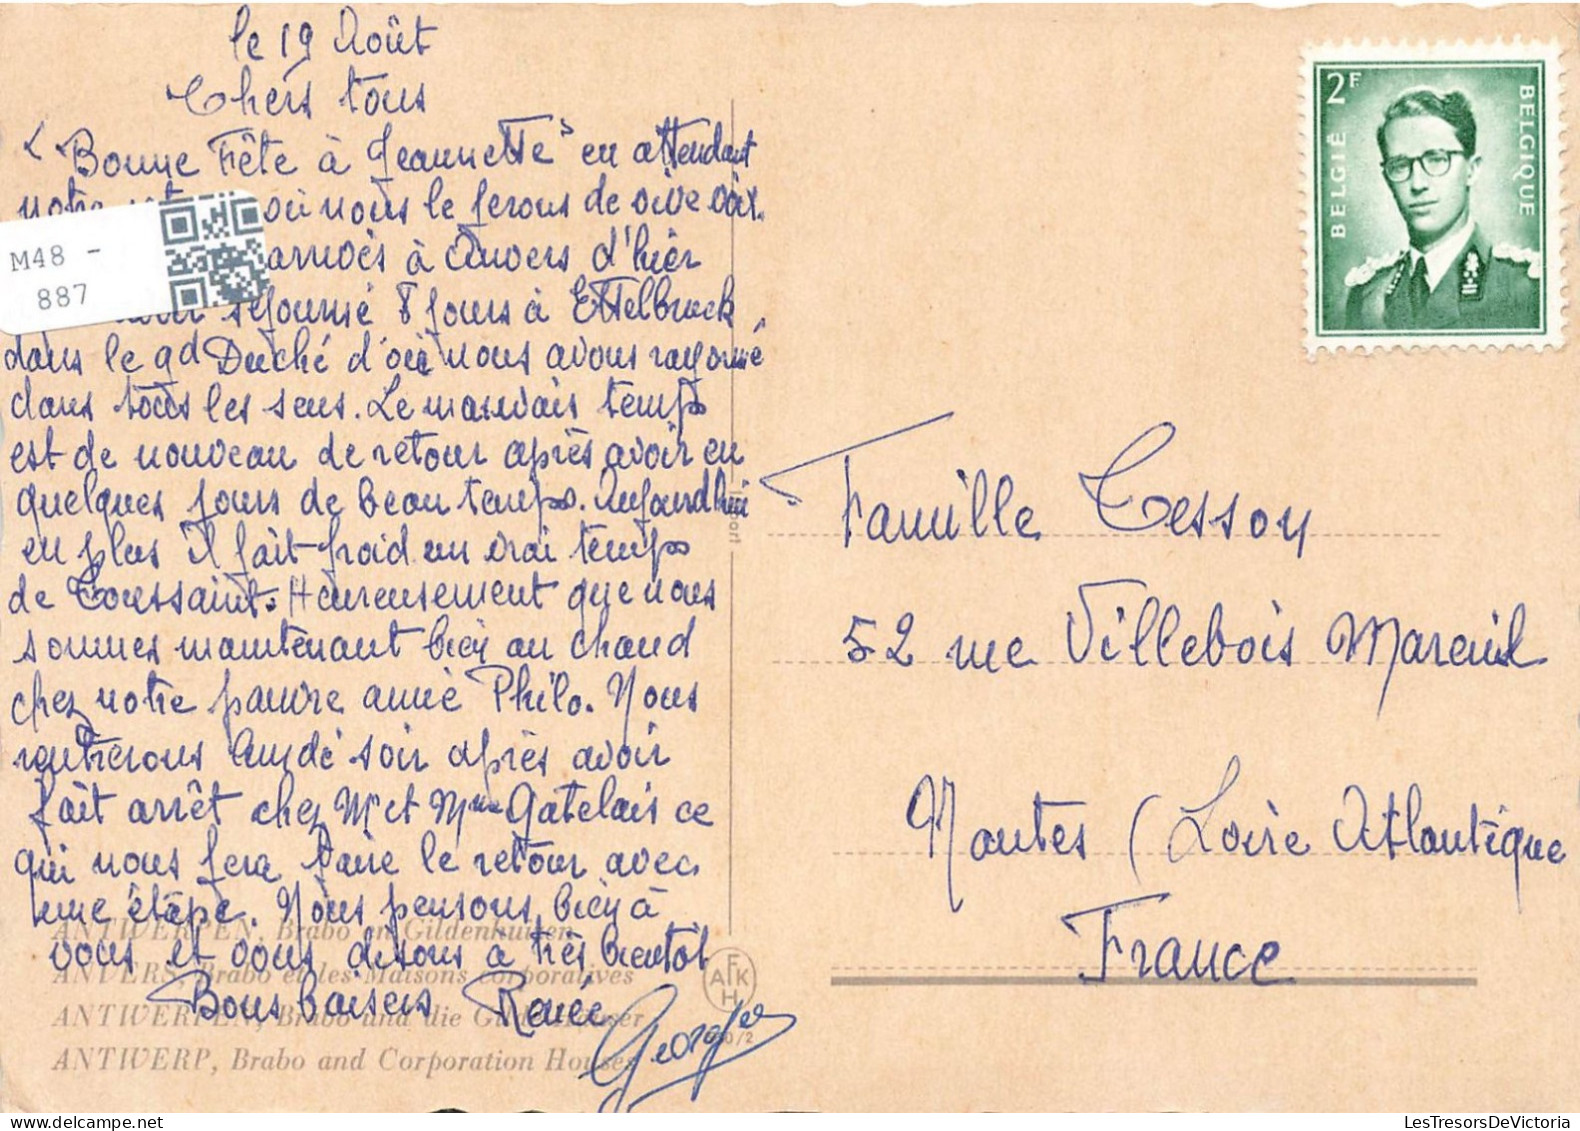 le 19 Août
Chers tous
"Bonne Fête à Jeannette" en attendant
notre où nous le ferons de vive voix.
arrivés à Anvers d'hier
séjourné 8 jours à Ettelbruck
dans le gd Duché d'où nous avons rayonné
dans tous les sens. Le mauvais temps
est de nouveau de retour après avoir eu
quelques jours de beau temps. Aujourd'hui
en plus il fait froid un vrai temps
de Toussaint. Heureusement que nous
sommes maintenant bien au chaud
chez notre pauvre amie Philo. Nous
rentrerons lundi soir après avoir
fait arrêt chez Mr et Mme Gatelais ce
qui nous fera faire le retour avec
une étape. Nous pensons bien à
vous et vous disons à très bientôt
Bons baisers Renée
Georges
M48 -
887
ANTWERPEN, Brabo en Gildenhuizen
ANVERS, Brabo et les Maisons corporatives
ANTWERPEN, Brabo und die Gildehäuser
ANTWERP, Brabo and Corporation Houses
Import
AFKH
0/2
2F
BELGIË
BELGIQUE
Famille Tesson
52 rue Villebois Mareuil
Nantes (Loire Atlantique
France
LesTresorsDeVictoria.com